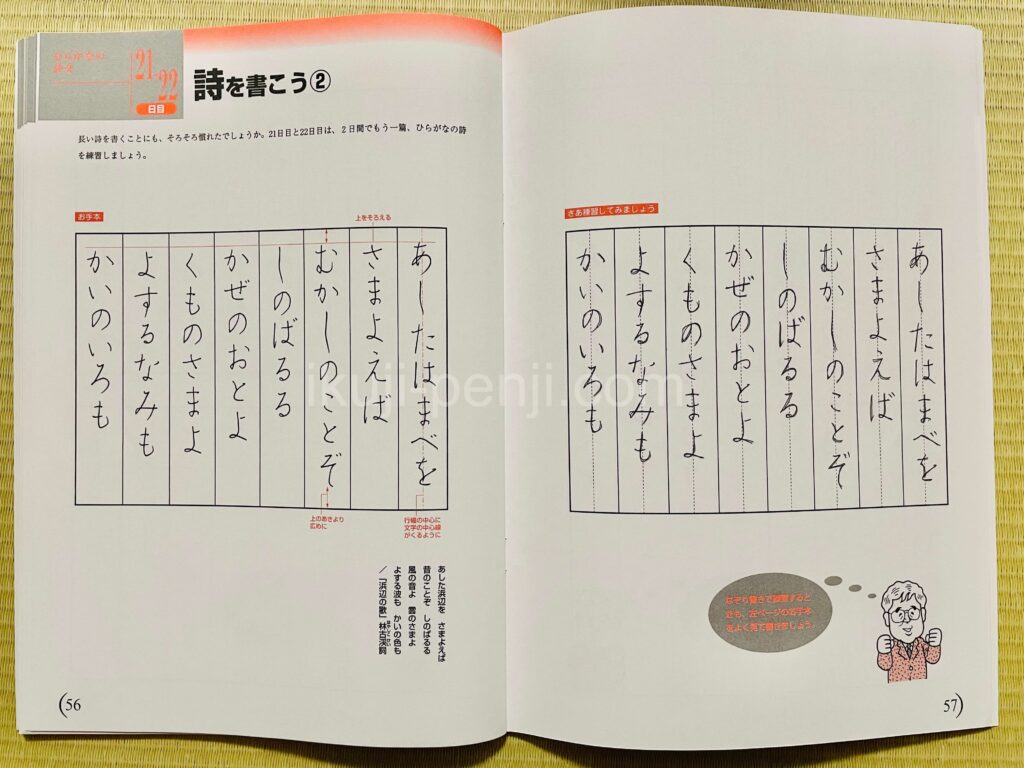 ひらがなの
詩文
21-22
日目
詩を書こう②
長い詩を書くことにも、そろそろ慣れたでしょうか。21日目と22日目は、2日間でもう一篇、ひらがなの詩
を練習しましょう。
お手本
上をそろえる
あしたはまべを
さまよえば
むかしのことぞ
しのばるる
かぜのおとよ
くものさまよ
よするなみも
かいのいろも
行幅の中心に
文字の中心線
がくるように
上のあきより
広めに
あした浜辺を さまよえば
昔のことぞ しのばるる
風の音よ 雲のさまよ
よする波も かいの色も
/「浜辺の歌」林古渓詞
56
さあ練習してみましょう
あしたはまべを
さまよえば
むかしのことぞ
しのばるる
かぜのおとよ
くものさまよ
よするなみも
かいのいろも
なぞり書きで練習すると
きも、左ページのお手本
をよく見て書きましょう。
57
ikuji-penji.com